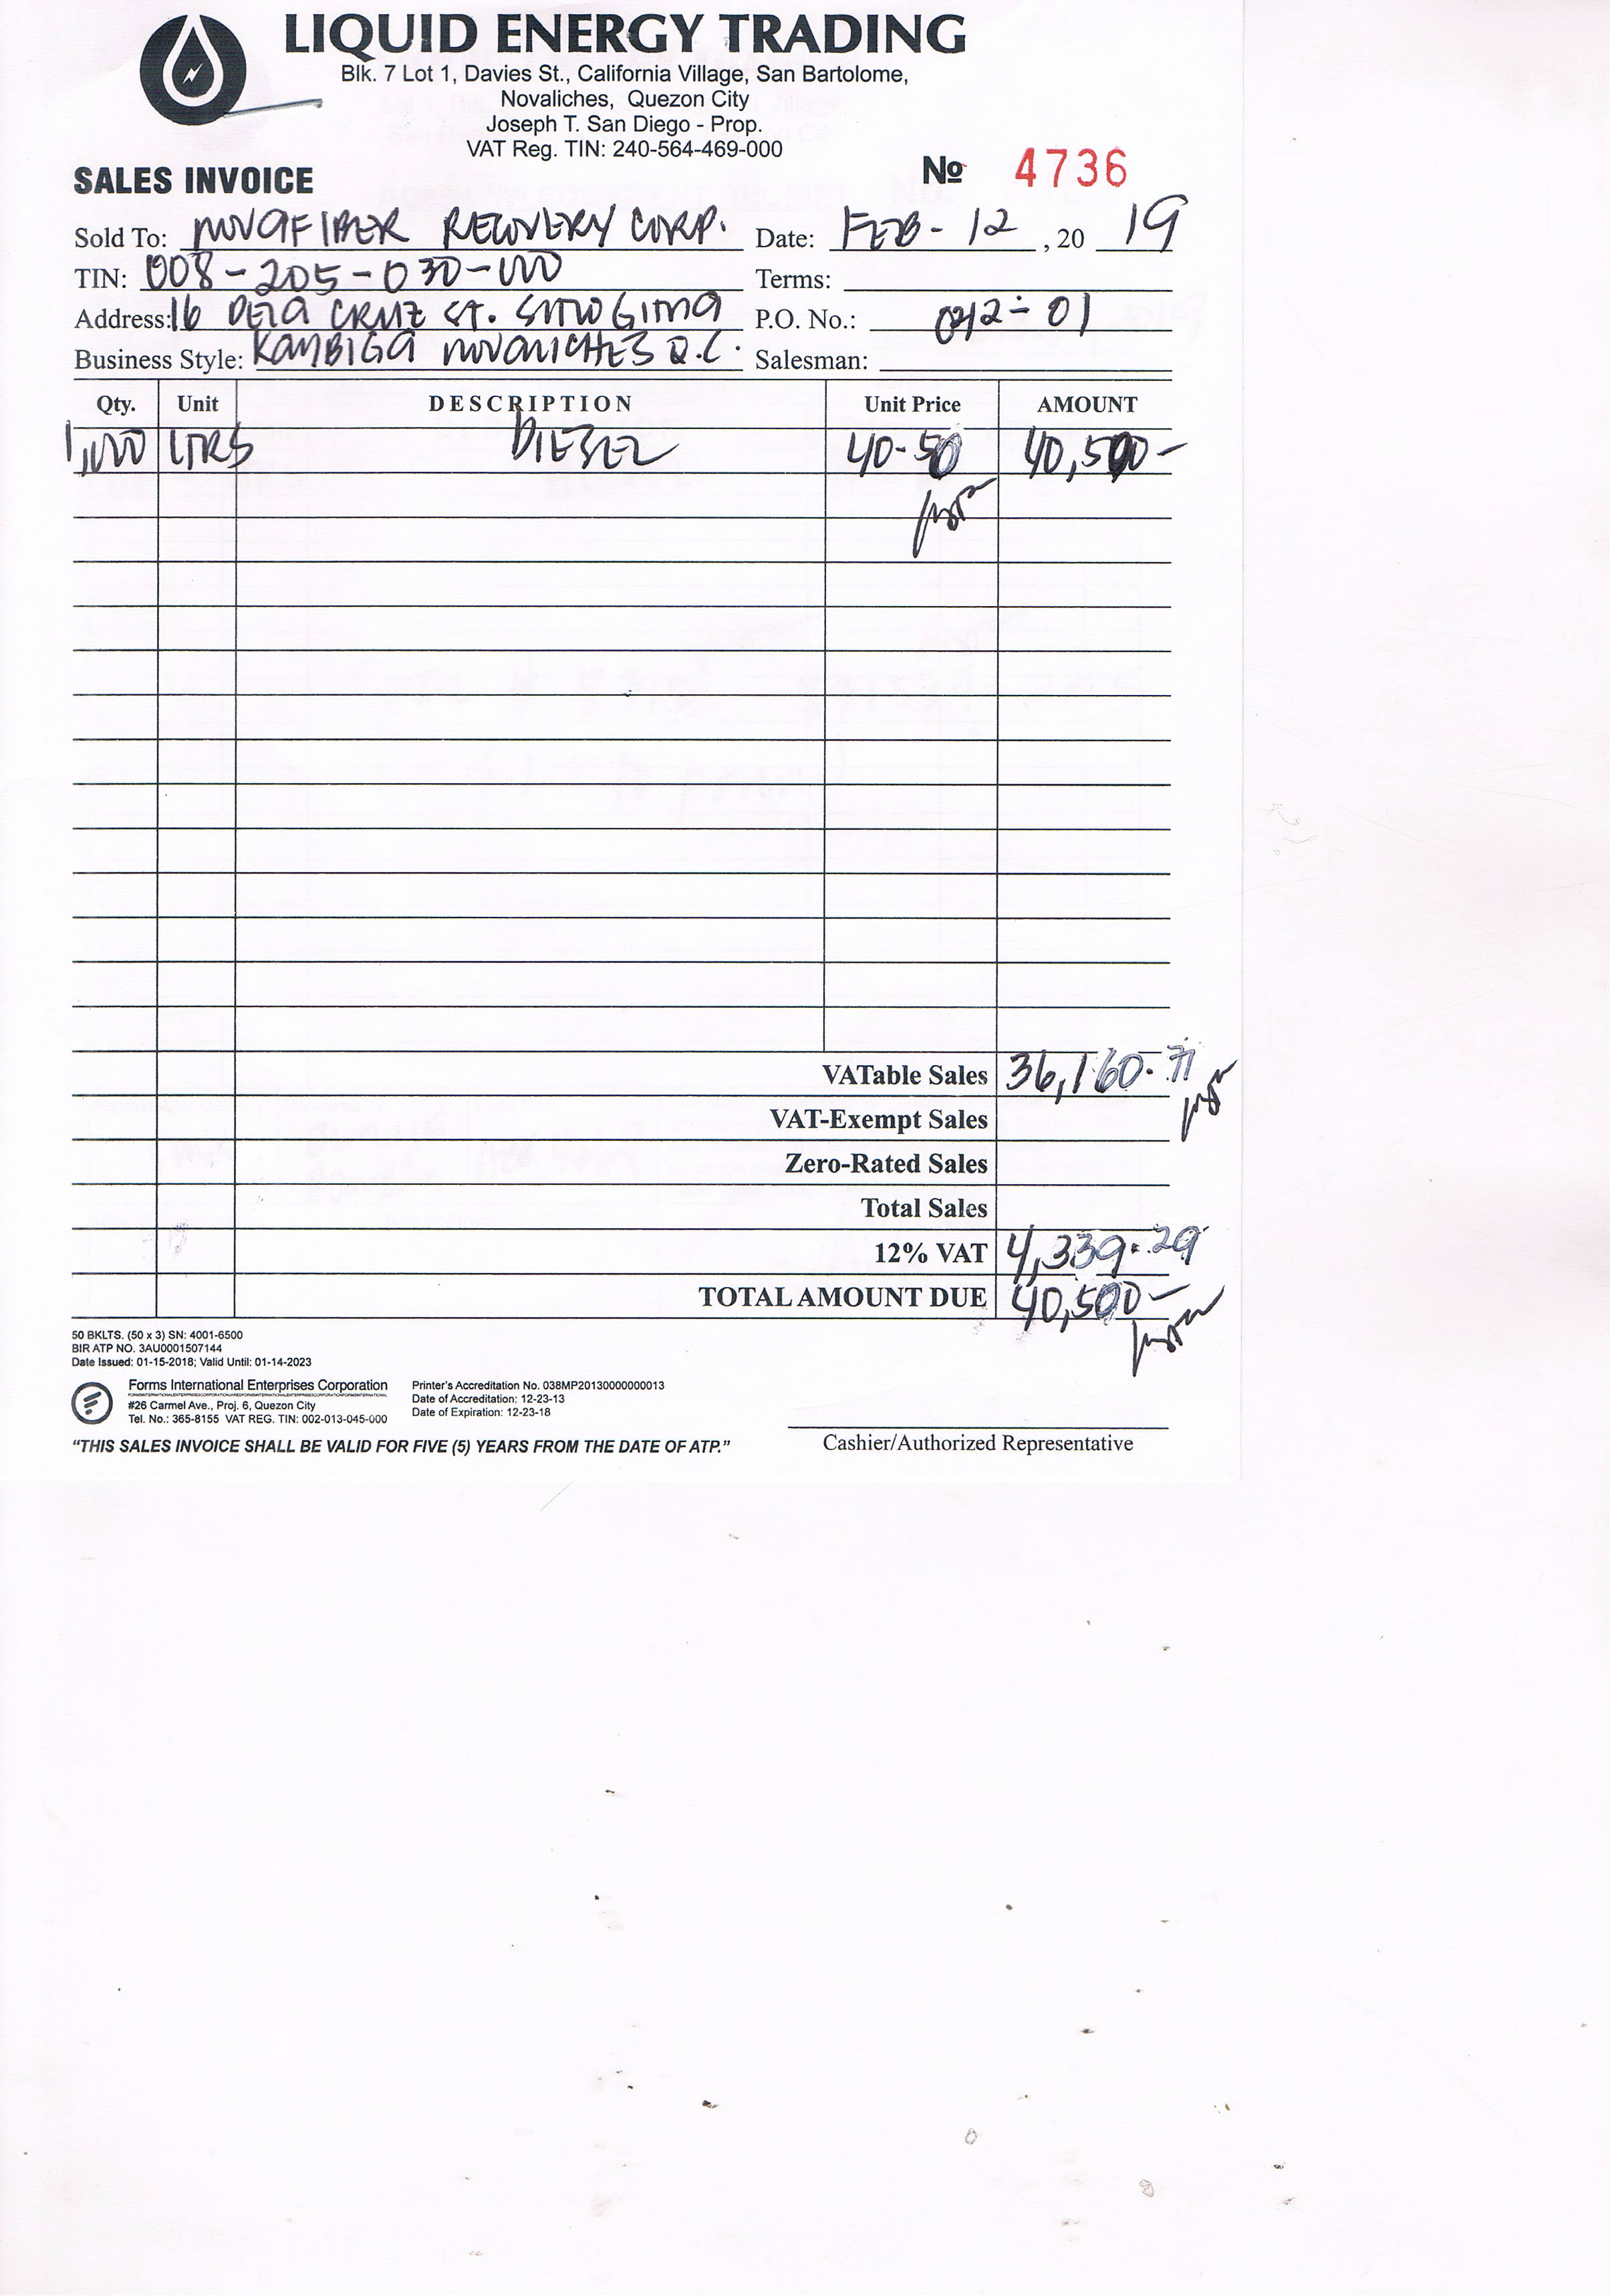 LIQUID ENERGY TRADING
Blk. 7 Lot 1, Davies St., California Village, San Bartolome,
Novaliches, Quezon City
Joseph T. San Diego - Prop.
VAT Reg. TIN: 240-564-469-000
SALES INVOICE
№ 4736
Sold To: NOVAFIBER RECOVERY CORP. Date: FEB - 12, 20 19
TIN: 008-205-030-000 Terms:
Address: 16 DELA CRUZ ST. SITIO GITNA P.O. No.: 0212-01
Business Style: KAYBIGA NOVALICHES Q.C. Salesman:
Qty. Unit DESCRIPTION Unit Price AMOUNT
1,000 LTRS DIESEL 40-50 40,500-
VATable Sales 36,160.71
VAT-Exempt Sales
Zero-Rated Sales
Total Sales
12% VAT 4,339.29
TOTAL AMOUNT DUE 40,500-
50 BKLTS. (50 x 3) SN: 4001-6500
BIR ATP NO. 3AU0001507144
Date Issued: 01-15-2018; Valid Until: 01-14-2023
Forms International Enterprises Corporation
#26 Carmel Ave., Proj. 6, Quezon City
Tel. No.: 365-8155 VAT REG. TIN: 002-013-045-000
Printer's Accreditation No. 038MP20130000000013
Date of Accreditation: 12-23-13
Date of Expiration: 12-23-18
"THIS SALES INVOICE SHALL BE VALID FOR FIVE (5) YEARS FROM THE DATE OF ATP."
Cashier/Authorized Representative